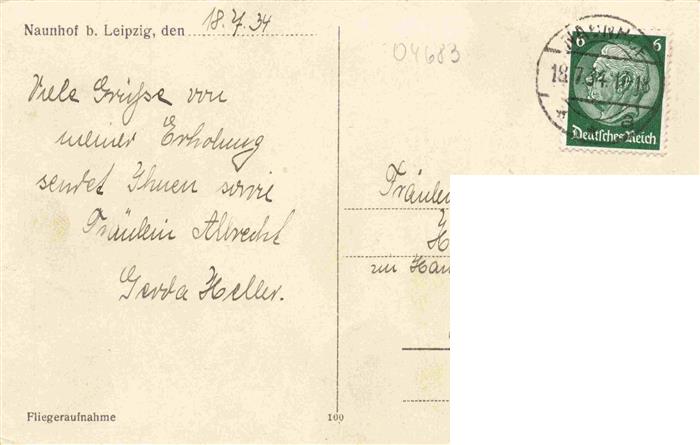 Naunhof b. Leipzig, den 18.7.34
04683
6 6
18.7.34.17-18
a
Deutsches Reich
Viele Grüße von
meiner Erholung
sendet Ihnen sowie
Fräulein Albrecht
Gerda Heller.
Fräulein
H
zu Hän
Fliegeraufnahme
100